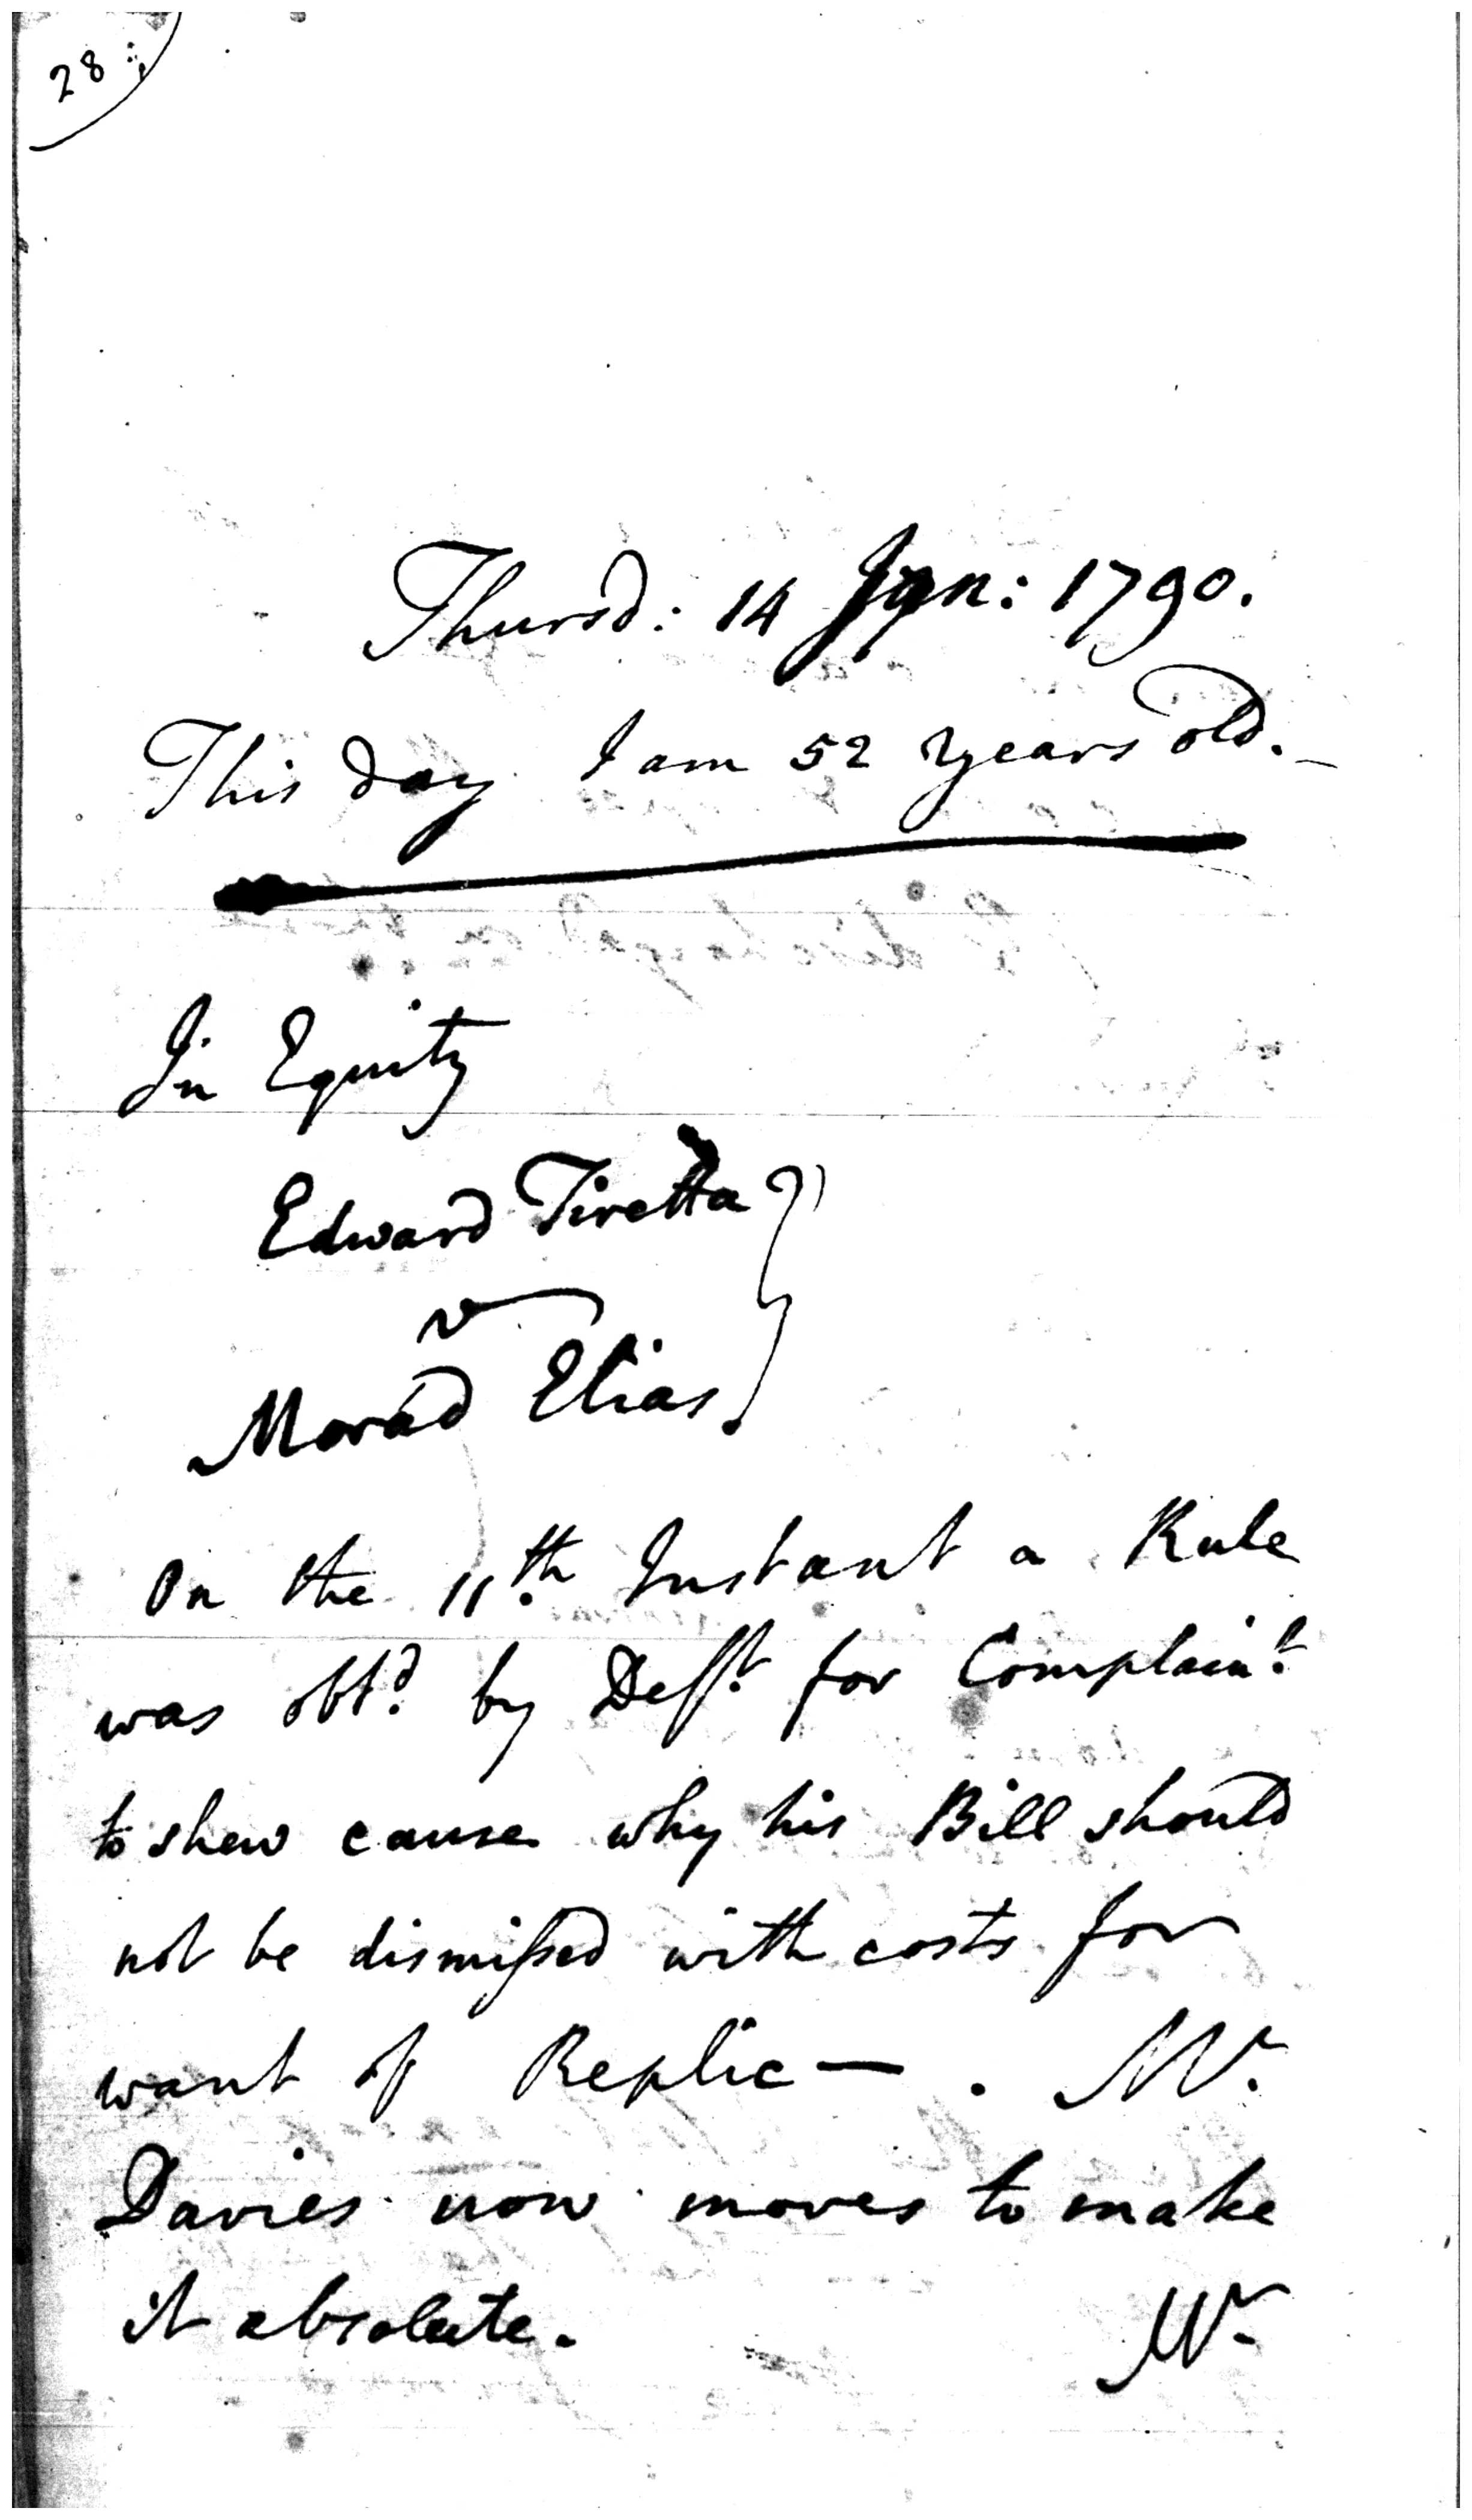 28
Thursd: 14 Jan: 1790.
This day I am 52 years old.
In Equity
Edward Tiretta
v
Morad Elias.
On the 11.th Instant a Rule
was obtd. by Defft. for Complaint.
to shew cause why his Bill should
not be dismissed with costs for
want of Replic—. Mr.
Davies now moves to make
it absolute.
Mr.